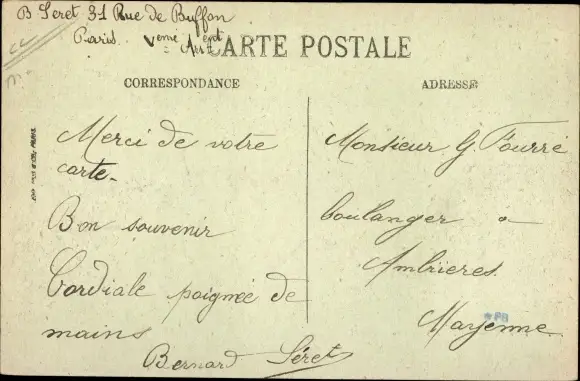 B Seret 31 Rue de Buffon
Paris. Vème Arrdt
CARTE POSTALE
CORRESPONDANCE
ADRESSE
Merci de votre
carte.
Bon souvenir
Cordiale poignée de
mains
Bernard Séret
Monsieur G. Fourré
boulanger a
Ambrieres
Mayenne